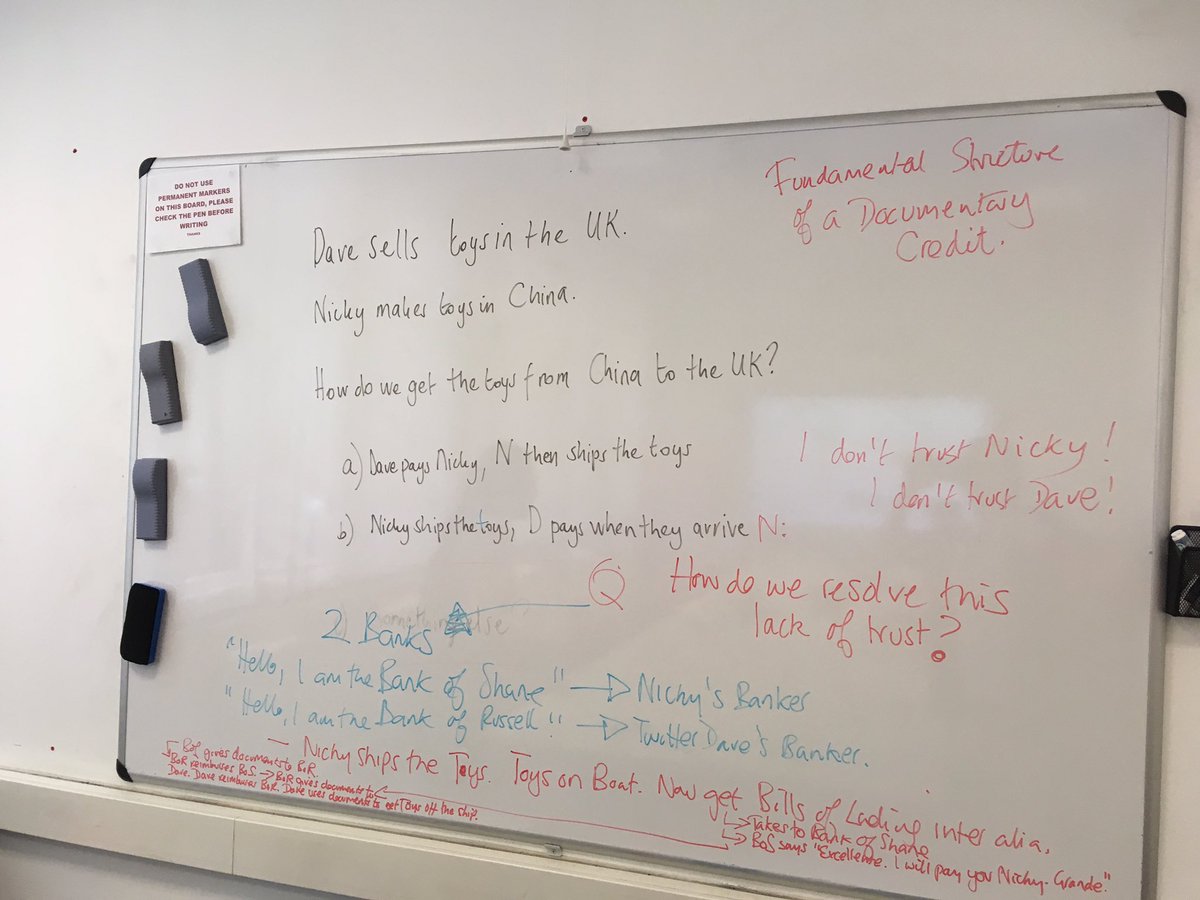 DO NOT USE
PERMANENT MARKERS
ON THIS BOARD, PLEASE
CHECK THE PEN BEFORE
WRITING
THANKS
Fundamental Structure
of a Documentary
Credit.
Dave sells toys in the UK.
Nicky makes toys in China.
How do we get the toys from China to the UK?
a) Dave pays Nicky, N then ships the toys
I don't trust Nicky!
I don't trust Dave!
b) Nicky ships the toys, D pays when they arrive N:
Q How do we resolve this
lack of trust?
2 Banks
"Hello, I am the Bank of Shane" → Nicky's Banker
"Hello, I am the Bank of Russell" → Twitter Dave's Banker.
— Nicky ships the Toys. Toys on Boat. Now get Bills of Lading inter alia.
↳ Takes to Bank of Shane
↳ BoS says "Excellente. I will pay you Nicky. Grande."
BoS gives documents to BoR.
BoR reimburses BoS. → BoR gives documents to
Dave. Dave reimburses BoR. Dave uses documents to get Toys off the ship.